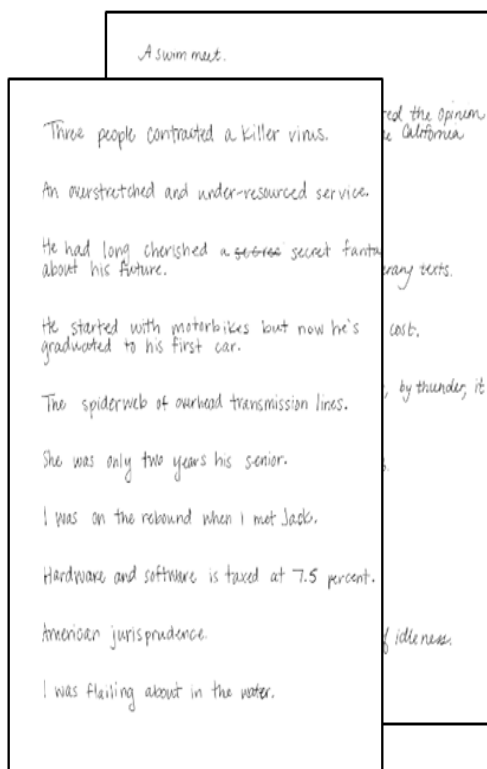 A swim meet.
red the opinion
California
Three people contracted a killer virus.
An overstretched and under-resourced service.
He had long cherished a secret
about his future.
erary texts.
He started with motorbikes but now he's
graduated to his first car.
cost.
The spiderweb of overhead transmission lines.
, by thunder, it
She was only two years his senior.
I was on the rebound when I met Jack.
Hardware and software is taxed at 7.5 percent.
American jurisprudence.
idleness.
I was flailing about in the water.